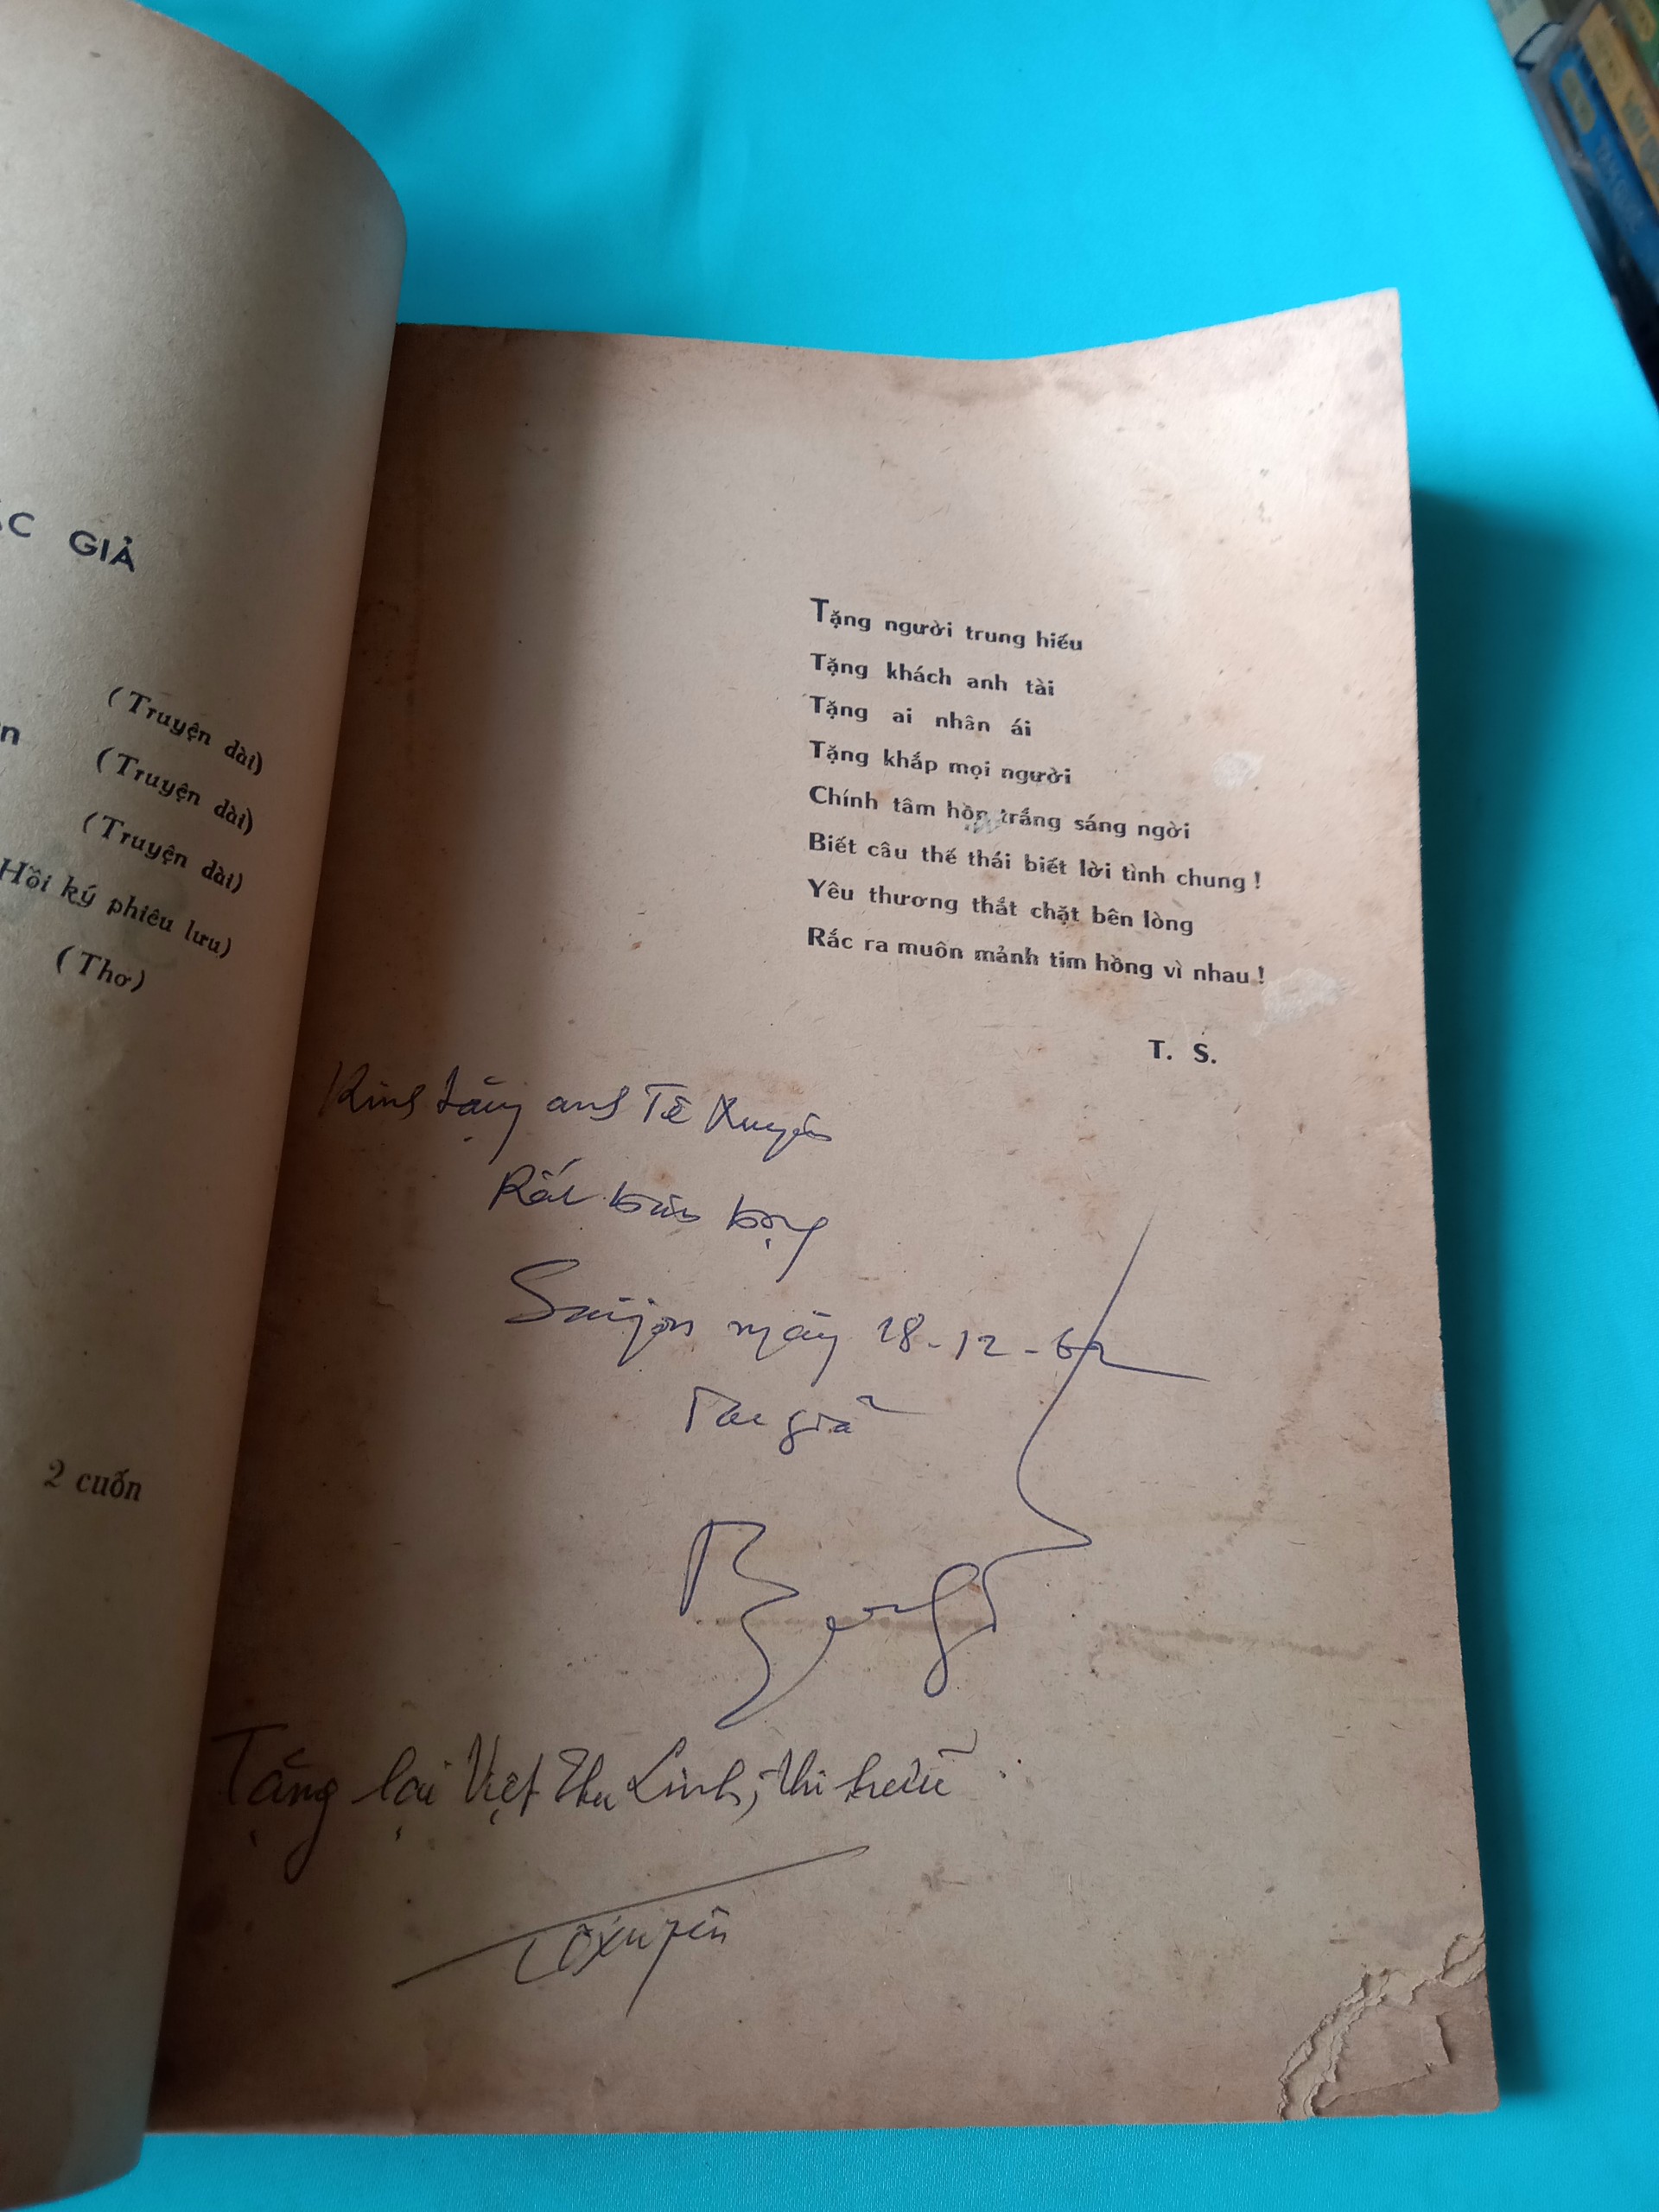 ÁC GIẢ
(Truyện dài)
n (Truyện dài)
(Truyện dài)
Hồi ký phiêu lưu)
(Thơ)
2 cuốn
Tặng người trung hiếu
Tặng khách anh tài
Tặng ai nhân ái
Tặng khắp mọi người
Chính tâm hồn trắng sáng ngời
Biết câu thế thái biết lời tình chung !
Yêu thương thắt chặt bên lòng
Rắc ra muôn mảnh tim hồng vì nhau !
T. S.
Kính tặng anh Tế Xuyên
Rất trân trọng
Saigon ngày 28-12-62
Tác giả
Tặng lại Việt Thu Linh, thi hữu
Tế Xuyên